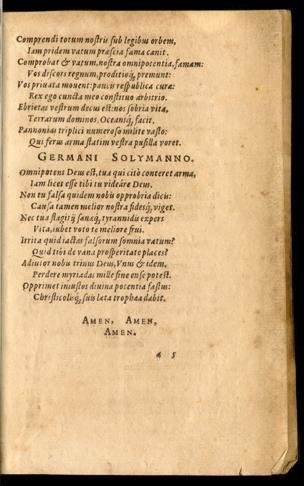 Comprendi totum nostris sub legibus orbem,
Iam pridem vatum præscia fama canit.
Comprobat & vatum, nostra omnipotentia, famam:
Vos discors regnum, proditioq́, premunt:
Vos privata movent: paucis respublica curæ:
Rex ego cuncta meo constituo arbitrio.
Ebrietas vestrum decus est: nos sobria vita,
Terrarum dominos, Oceaniq́, facit.
Pannonias triplici numeroso milite vasto:
Qui feras arma statim vestra pusilla voret.
GERMANI SOLYMANNO.
Omnipotens Deus est, tua qui citò conteret arma,
Iam licet esse tibi tu videâre Deus.
Non tu falsa quidem nobis opprobria dicis:
Causa tamen melior nostra fidesq́, viget.
Nec tua flagitijs sævæq́, tyrannidis expers
Vita, iubet voto te meliore frui.
Irrita quid iactas falsorum somnia vatum?
Quid tibi de vana prosperitate places?
Adiutor nobis trinus Deus, Vnus & idem,
Perdere myriadas mille sine ense potest.
Opprimet iniustos divina potentia fastus:
Christicolisq́, suis læta trophæa dabit.
AMEN, AMEN,
AMEN.
a 5